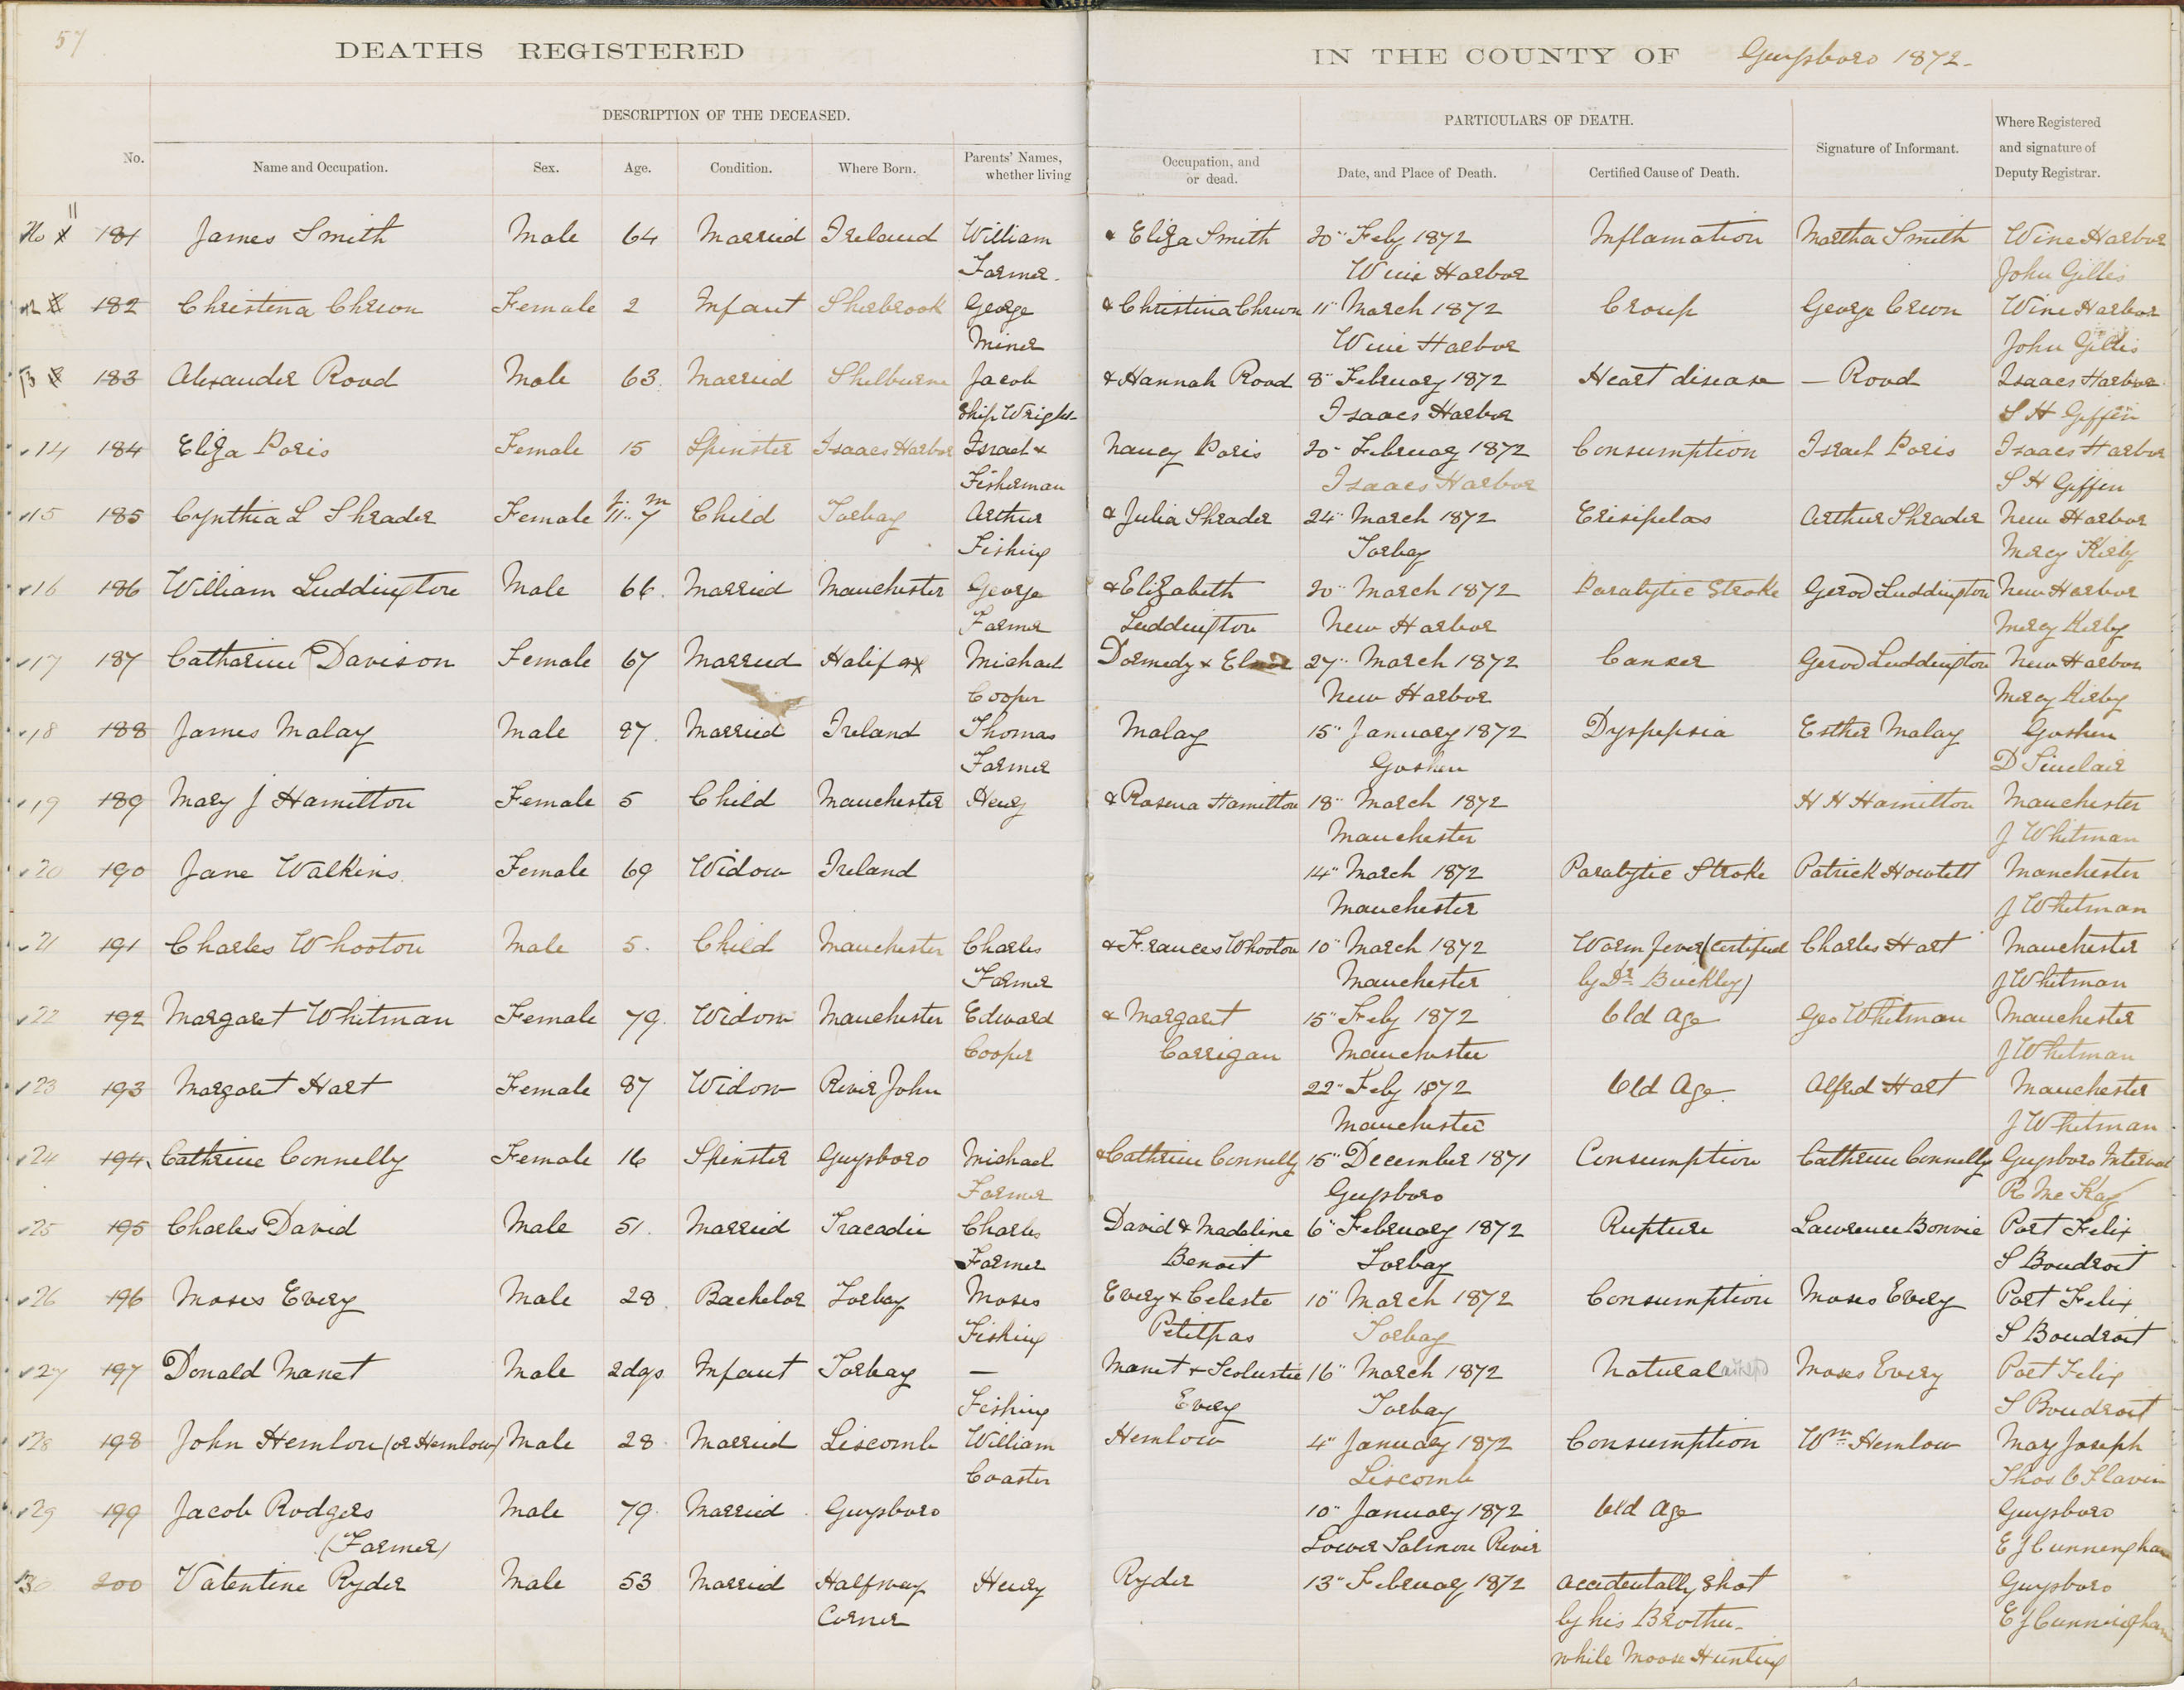 57
DEATHS REGISTERED IN THE COUNTY OF Guysboro 1872.
DESCRIPTION OF THE DECEASED. PARTICULARS OF DEATH.
No. Name and Occupation. Sex. Age. Condition. Where Born. Parents' Names, whether living Occupation, and or dead. Date, and Place of Death. Certified Cause of Death. Signature of Informant. Where Registered and signature of Deputy Registrar.
11 181 James Smith Male 64 Married Ireland William & Eliza Smith 20" Feby 1872 Inflamation Martha Smith Wine Harbor
Farmer. Wine Harbor John Gillis
182 Christina Chreon Female 2 Infant Sherbrook George & Christina Chreon 11" March 1872 Croup George Creon Wine Harbor
Miner Wine Harbor John Gillis
13 183 Alexander Rood Male 63. Married Shelburne Jacob & Hannah Rood 8" February 1872 Heart disease — Rood Isaacs Harbor
Ship Wright Isaacs Harbor S H Giffin
14 184 Eliza Paris Female 15 Spinster Isaacs Harbor Israel & Nancy Paris 20" February 1872 Consumption Israel Paris Isaacs Harbor
Fisherman Isaacs Harbor S H Giffin
15 185 Cynthia L Shrader Female 11" 7 m Child Torbay Arthur & Julia Shrader 24" March 1872 Erisipelas Arthur Shrader New Harbor
Fishing Torbay Mercy Kirby
16 186 William Luddington Male 66. Married Manchester George & Elizabeth 20" March 1872 Paralytic Stroke Gerod Luddington New Harbor
Farmer Luddington New Harbor Mercy Kirby
17 187 Catharine P Davison Female 67 Married Halifax Michael Dormedy & 27" March 1872 Cancer Gerod Luddington New Harbor
Cooper New Harbor Mercy Kirby
18 188 James Malay Male 87. Married Ireland Thomas Malay 15" January 1872 Dyspepsia Esther Malay Goshen
Farmer Goshen D Sinclair
19 189 Mary J Hamilton Female 5 Child Manchester Henry & Rasena Hamilton 18" March 1872 H H Hamilton Manchester
Manchester J Whitman
20 190 Jane Walkins. Female 69 Widow Ireland 14" March 1872 Paralytic Stroke Patrick Howlett Manchester
Manchester J Whitman
21 191 Charles Whooton Male 5. Child Manchester Charles & Frances Whooton 10" March 1872 Worm fever (certified Charles Hart Manchester
Farmer Manchester by Dr. Buckley) J Whitman
22 192 Margaret Whitman Female 79. Widow Manchester Edward & Margaret 15" Feby 1872 Old Age Geo Whitman Manchester
Cooper Carrigan Manchester J Whitman
23 193 Margaret Hart Female 87 Widow River John 22" Feby 1872 Old Age. Alfred Hart Manchester
Manchester J Whitman
24 194 Cathrine Connelly Female 16 Spinster Guysboro Michael & Cathrine Connelly 15" December 1871 Consumption Cathrine Connelly Guysboro Interval
Farmer Guysboro R McKay
25 195 Charles David Male 51. Married Tracadie Charles David & Madaline 6" February 1872 Rupture Lawrence Bonvie Port Felix
Farmer Benoit Torbay S Boudroit
26 196 Moses Every Male 28. Bachelor Torbay Moses Every & Celeste 10" March 1872 Consumption Moses Every Port Felix
Fishing Petitpas Torbay S Boudroit
27 197 Donald Manet Male 2dys Infant Torbay — Manet & Scolustie 16" March 1872 Natural Moses Every Port Felix
Fishing Every Torbay S Boudroit
28 198 John Hemlou (or Hemlow) Male 28. Married Liscomb William Hemlow 4" January 1872 Consumption Wm Hemlow May Joseph
Coaster Liscomb Thos C Flavin
29 199 Jacob Rodgers Male 79. Married. Guysboro 10" January 1872 Old Age Guysboro
(Farmer) Lower Salmon River E J Cunningham
30 200 Valentine Ryder Male 53 Married Halfway Henry Ryder 13" February 1872 Accidentally Shot Guysboro
Corner by his Brother E J Cunningham
while Moose Hunting